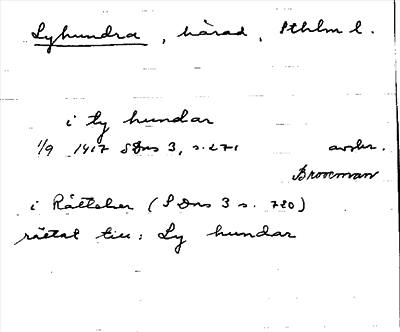 Lyhundra, härad, Sthlm l.
i ty hundar
1/9 1417 SDns 3, s. 271 avskr.
Brooman
i Rättelser (SDns 3 s. 720)
rättat till: Ly hundar